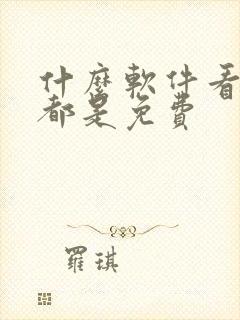 什麼軟件看
都是免費
羅琪